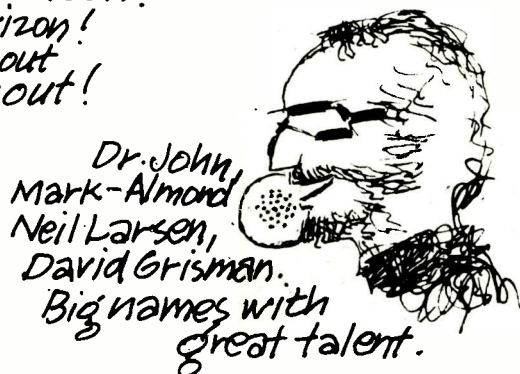 izon!
out
out!
Dr. John,
Mark-Almond
Neil Larsen,
David Grisman.
Big names with
great talent.